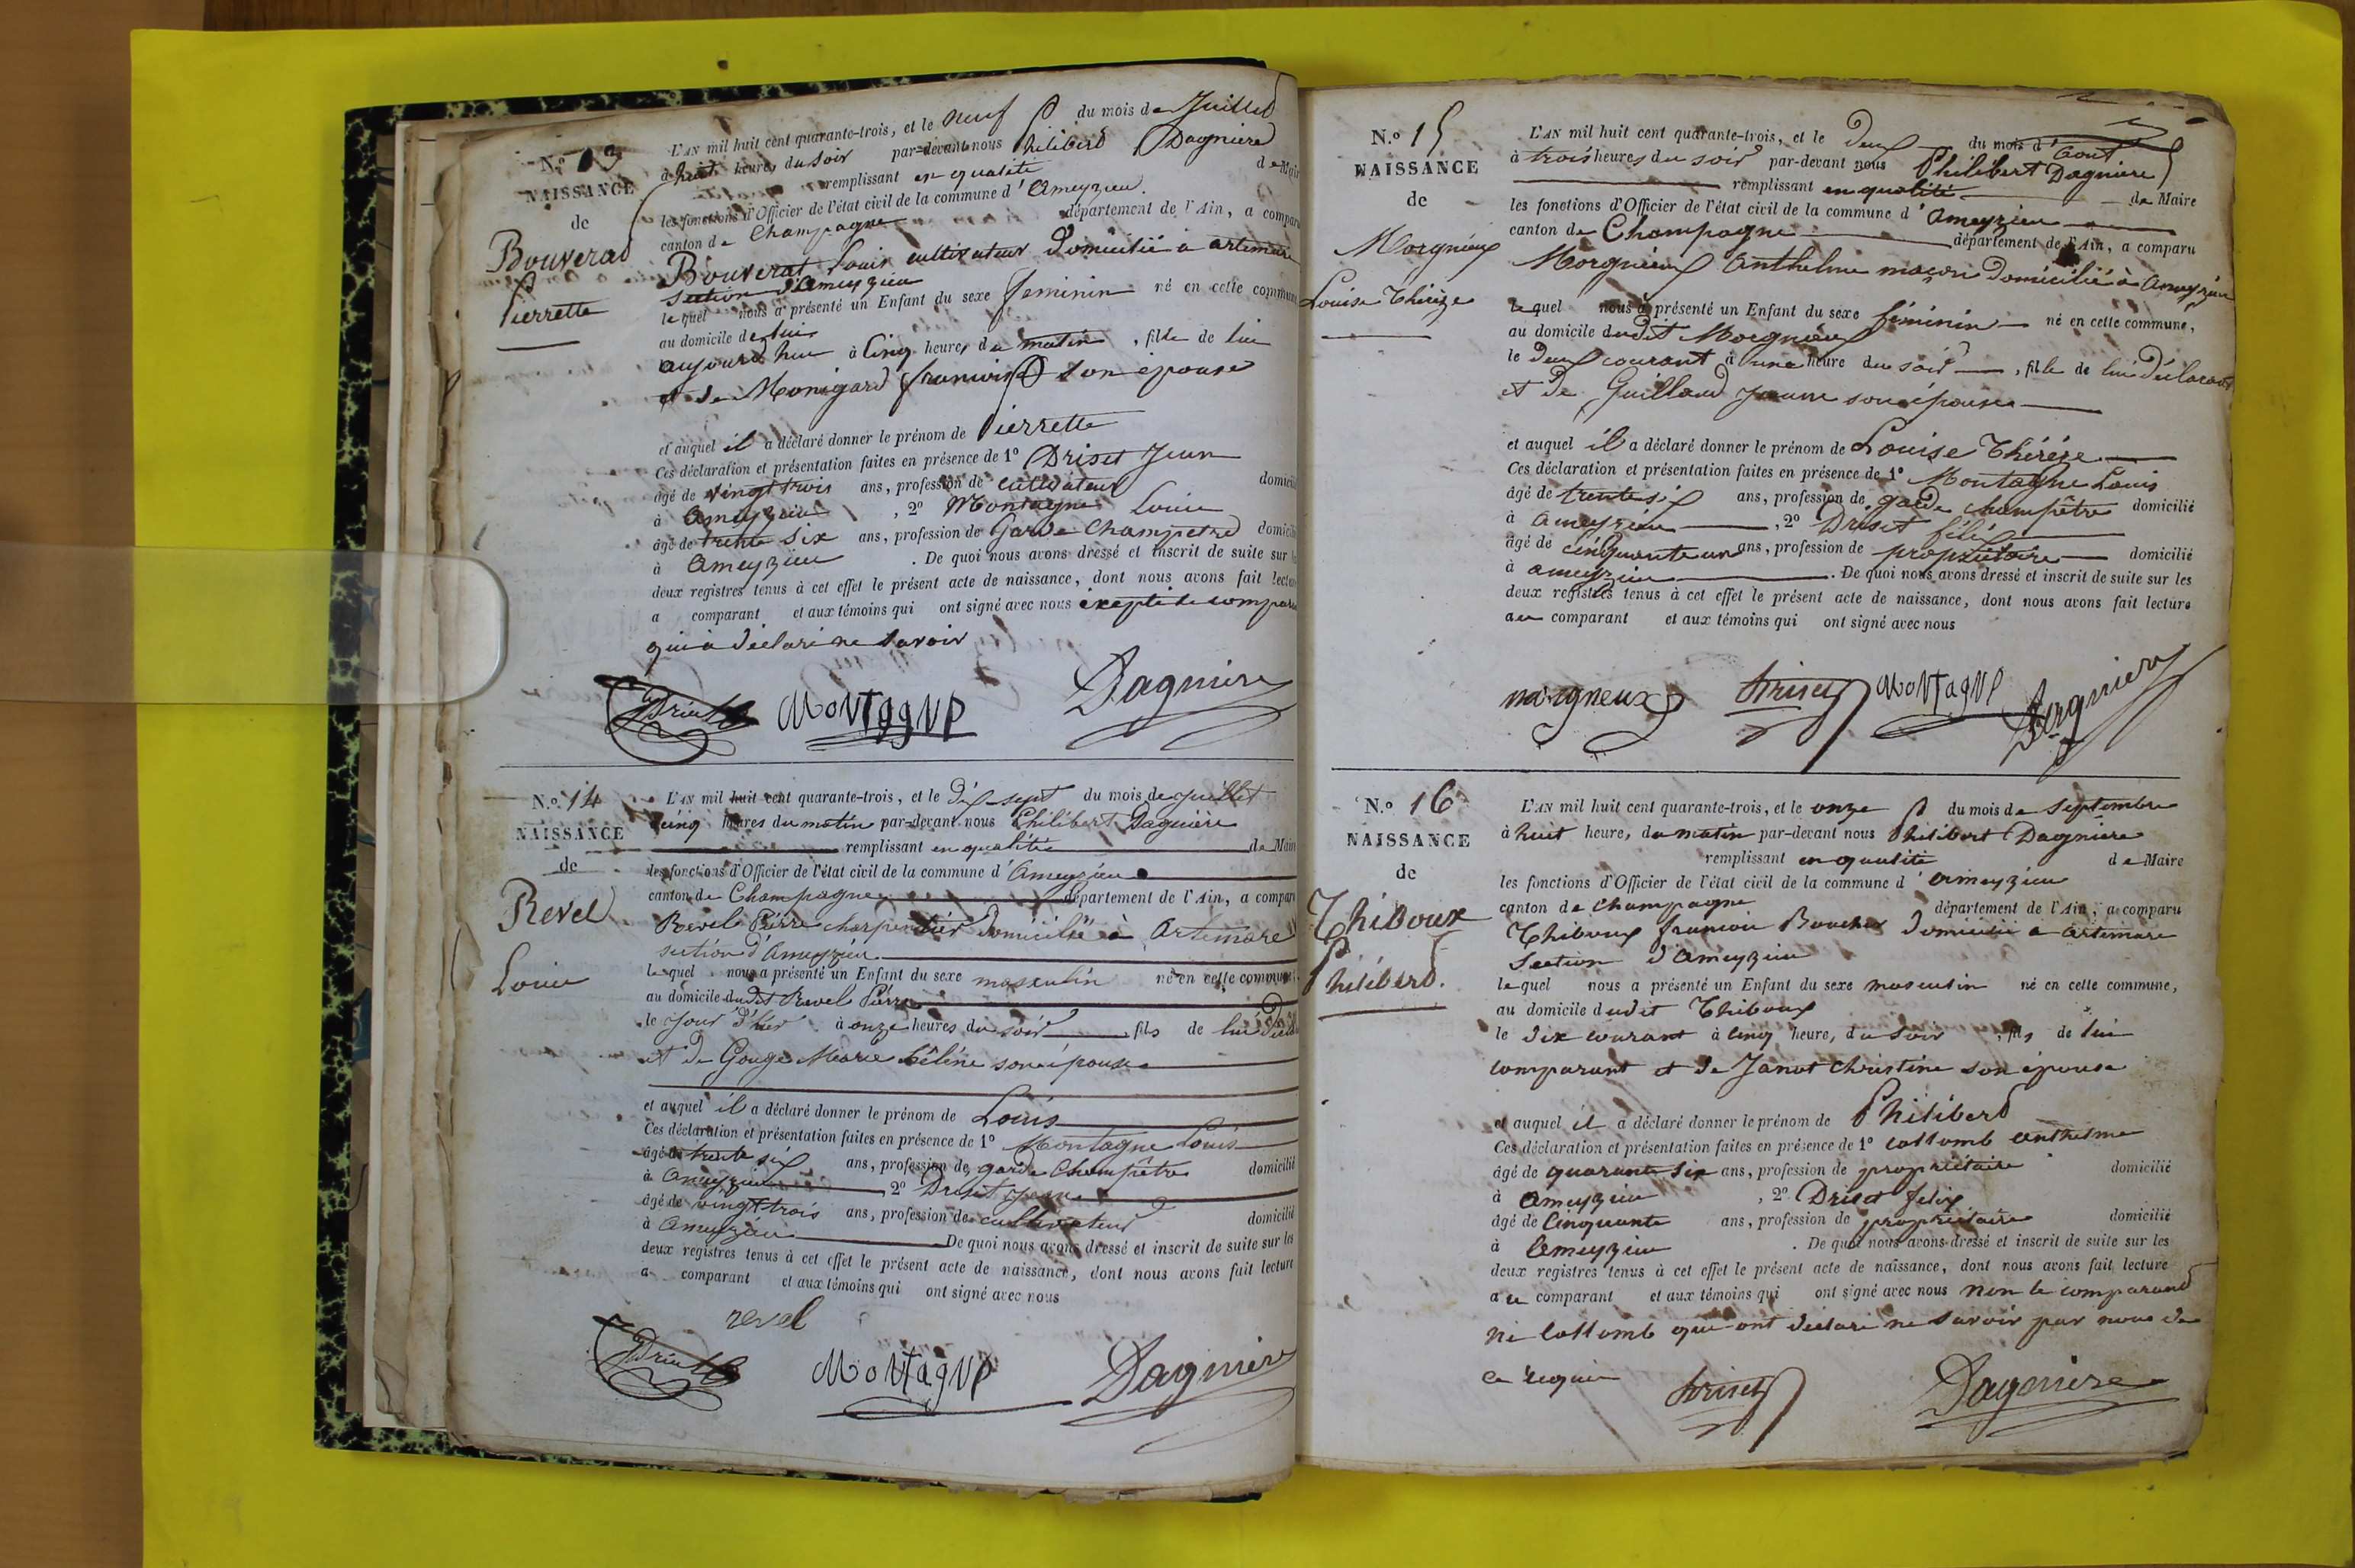 N.º 13
NAISSANCE
de
Bouverad
Pierrette
L'AN mil huit cent quarante-trois, et le neuf du mois de Juillet
à huit heures du soir par-devant nous Philiberd Dagniere
remplissant en qualité de Maire
les fonctions d'Officier de l'état civil de la commune d'Ameyzieu.
canton de Champagne département de l'Ain, a comparu
Bouverat Louis cultivateur domicilié à artemare
section d'Ameyzieu
lequel nous a présenté un Enfant du sexe feminin né en cette commune
au domicile de lui
aujourd'hui à Cinq heures du matin, fille de lui
et de Monigard françoise son épouse
et auquel il a déclaré donner le prénom de Pierrette
Ces déclaration et présentation faites en présence de 1º Driset Jean
âgé de vingt trois ans, profession de cultivateur domicilié
à Ameyzieu, 2º Montagne Louis
âgé de trente six ans, profession de Garde Champetre domicilié
à Ameyzieu. De quoi nous avons dressé et inscrit de suite sur les
deux registres tenus à cet effet le présent acte de naissance, dont nous avons fait lecture
a comparant et aux témoins qui ont signé avec nous excepté le comparant
qui a déclaré ne savoir
Montagne Dagniere
N.º 14
NAISSANCE
de
Revel
Louis
L'AN mil huit cent quarante-trois, et le dix sept du mois de juillet
à cinq heures du matin par-devant nous Philibert Dagnière
remplissant en qualité de Maire
les fonctions d'Officier de l'état civil de la commune d'Ameyzieu
canton de Champagne département de l'Ain, a comparu
Revel Pierre charpentier domicilié à Artemare
section d'Ameyzieu
lequel nous a présenté un Enfant du sexe masculin né en cette commune
au domicile dudit Revel Pierre
le jour d'hier à onze heures du soir, fils de lui
et de Gouge Marie hélène son épouse
et auquel il a déclaré donner le prénom de Louis
Ces déclaration et présentation faites en présence de 1º Montagne Louis
âgé de trente six ans, profession de garde Champêtre domicilié
à Ameyzieu, 2º Driset jean
âgé de vingt trois ans, profession de cultivateur domicilié
à Ameyzieu De quoi nous avons dressé et inscrit de suite sur les
deux registres tenus à cet effet le présent acte de naissance, dont nous avons fait lecture
a comparant et aux témoins qui ont signé avec nous
revel
Montagne Dagniere
N.º 15
NAISSANCE
de
Morgnieux
Louise Thérèze
L'AN mil huit cent quarante-trois, et le deux du mois d'Aout
à trois heures du soir par-devant nous Philibert Dagnière
remplissant en qualité de Maire
les fonctions d'Officier de l'état civil de la commune d'Ameyzieu
canton de Champagne département de l'Ain, a comparu
Morgnieux Anthelme maçon domicilié à Ameyzieu
lequel nous a présenté un Enfant du sexe féminin né en cette commune,
au domicile dudit Morgnieux
le deux courant à une heure du soir, fille de lui déclarant
et de Guilland Jeanne son épouse
et auquel il a déclaré donner le prénom de Louise Thérèze
Ces déclaration et présentation faites en présence de 1º Montagne Louis
âgé de trente six ans, profession de garde champêtre domicilié
à Ameyzieu, 2º Driset félix
âgé de cinquante un ans, profession de propriétaire domicilié
à ameyzieu. De quoi nous avons dressé et inscrit de suite sur les
deux registres tenus à cet effet le présent acte de naissance, dont nous avons fait lecture
au comparant et aux témoins qui ont signé avec nous
morgneux Driset Montagne Dagniere
N.º 16
NAISSANCE
de
Thiboux
Philiberd.
L'AN mil huit cent quarante-trois, et le onze du mois de Septembre
à huit heures du matin par-devant nous Philibert Dagniere
remplissant en qualité de Maire
les fonctions d'Officier de l'état civil de la commune d'ameyzieu
canton de Champagne département de l'Ain, a comparu
Thiboux françois Boucher domicilié a artemare
Section d'Ameyzieu
lequel nous a présenté un Enfant du sexe masculin né en cette commune,
au domicile dudit Thiboux
le dix courant à cinq heures du soir, fils de lui
comparant et de Janot Christine son épouse
et auquel il a déclaré donner le prénom de Philiberd
Ces déclaration et présentation faites en présence de 1º Collomb anthelme
âgé de quarante six ans, profession de propriétaire domicilié
à Ameyzieu, 2º Driset felix
âgé de Cinquante ans, profession de propriétaire domicilié
à Ameyzieu. De quoi nous avons dressé et inscrit de suite sur les
deux registres tenus à cet effet le présent acte de naissance, dont nous avons fait lecture
au comparant et aux témoins qui ont signé avec nous non le comparant
ni Collomb qui ont déclaré ne savoir par nous de
ce requis
Driset Dagniere